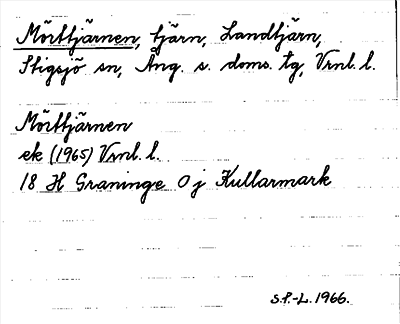 Mörttjärnen, tjärn, Landtjärn,
Stigsjö sn, Ång. s. doms. tg, Vrnl. l.
Mörttjärnen
ek (1965) Vrnl. l.
18 H Graninge 0 j Kullarmark
S.P.-L. 1966.